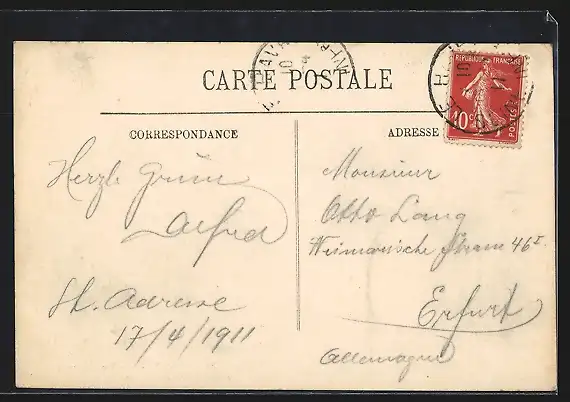 CARTE POSTALE
REPUBLIQUE FRANÇAISE
10c POSTES
CORRESPONDANCE
ADRESSE
Herzl. Grüsse
Alfred
St. Adresse
17/4/1911
Monsieur
Otto Lang
Weimarische Strasse 46 I.
Erfurt
Allemagne